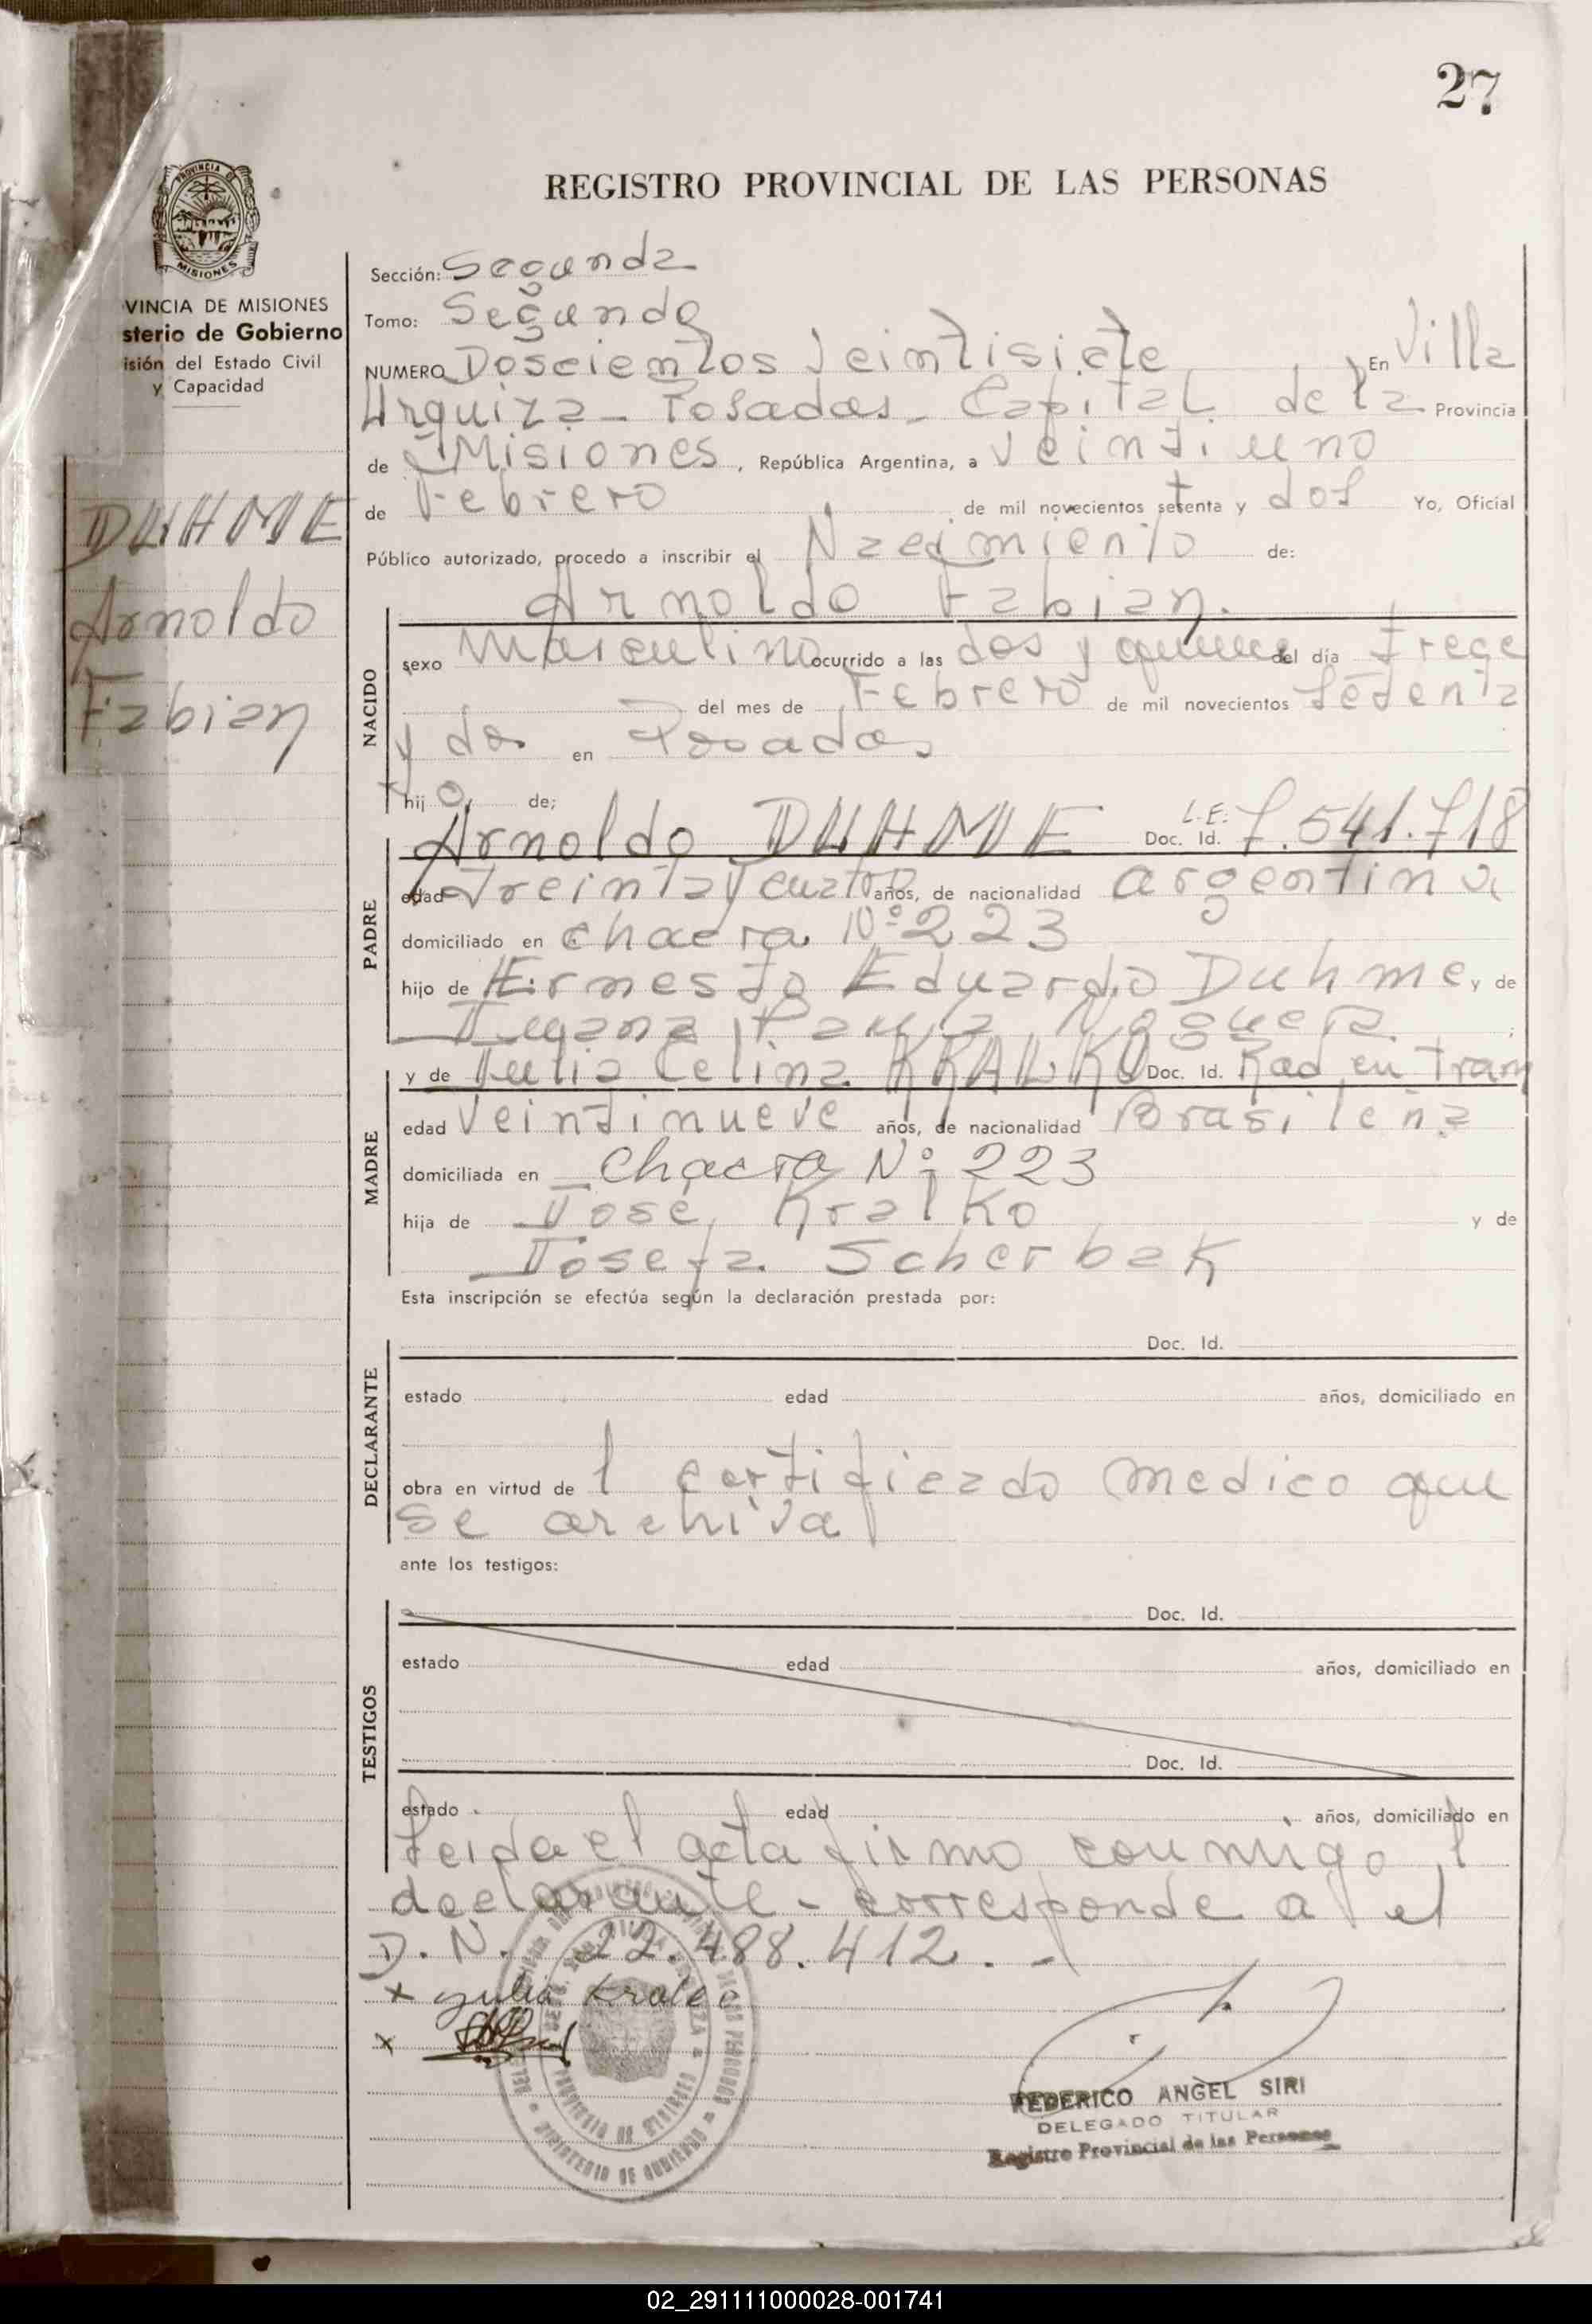 27
REGISTRO PROVINCIAL DE LAS PERSONAS
PROVINCIA DE
MISIONES
VINCIA DE MISIONES
sterio de Gobierno
isión del Estado Civil
y Capacidad
DUHME
Arnoldo
Fabian
Sección: Segunda
Tomo: Segundo
NUMERO Doscientos Veintisiete, En Villa
Urquiza - Posadas - Capital de la Provincia
de Misiones, República Argentina, a veintiuno
de Febrero de mil novecientos setenta y dos Yo, Oficial
Público autorizado, procedo a inscribir el Nacimiento de:
Arnoldo Fabian.
NACIDO
sexo Masculino ocurrido a las dos y quince del día trece
del mes de Febrero de mil novecientos setenta
y dos en Posadas
hijo de;
PADRE
Arnoldo DUHME L.E: Doc. Id. 7.541.718
edad treinta y cuatro años, de nacionalidad argentina
domiciliado en chacra Nº 223
hijo de Ernesto Eduardo Duhme y de
Juana Paula Noguera ;
MADRE
y de Julia Celina KRALKO Doc. Id. Rad en Tram
edad veintinueve años, de nacionalidad Brasileña
domiciliada en Chacra Nº 223
hija de José Kralko y de
Josefa Scherbak
Esta inscripción se efectúa según la declaración prestada por:
DECLARANTE
Doc. Id.
estado edad años, domiciliado en
obra en virtud de l certificado medico que
se archiva
ante los testigos:
TESTIGOS
Doc. Id.
estado edad años, domiciliado en
Doc. Id.
estado edad años, domiciliado en
Leida el acta firmo conmigo l
declarante - corresponde a el
D. N. 22.488.412. -
x Julia
x
PROVINCIA DE MISIONES
MINISTERIO DE GOBIERNO
FEDERICO ANGEL SIRI
DELEGADO TITULAR
Registro Provincial de las Personas
02_291111000028-001741